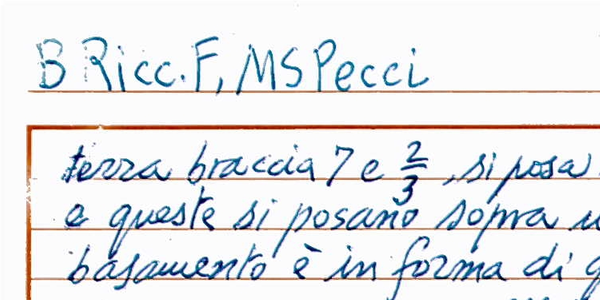 B Ricc. F, MS Pecci
terra braccia 7 e 2/3, si posa
e queste si posano sopra
basamento è in forma di